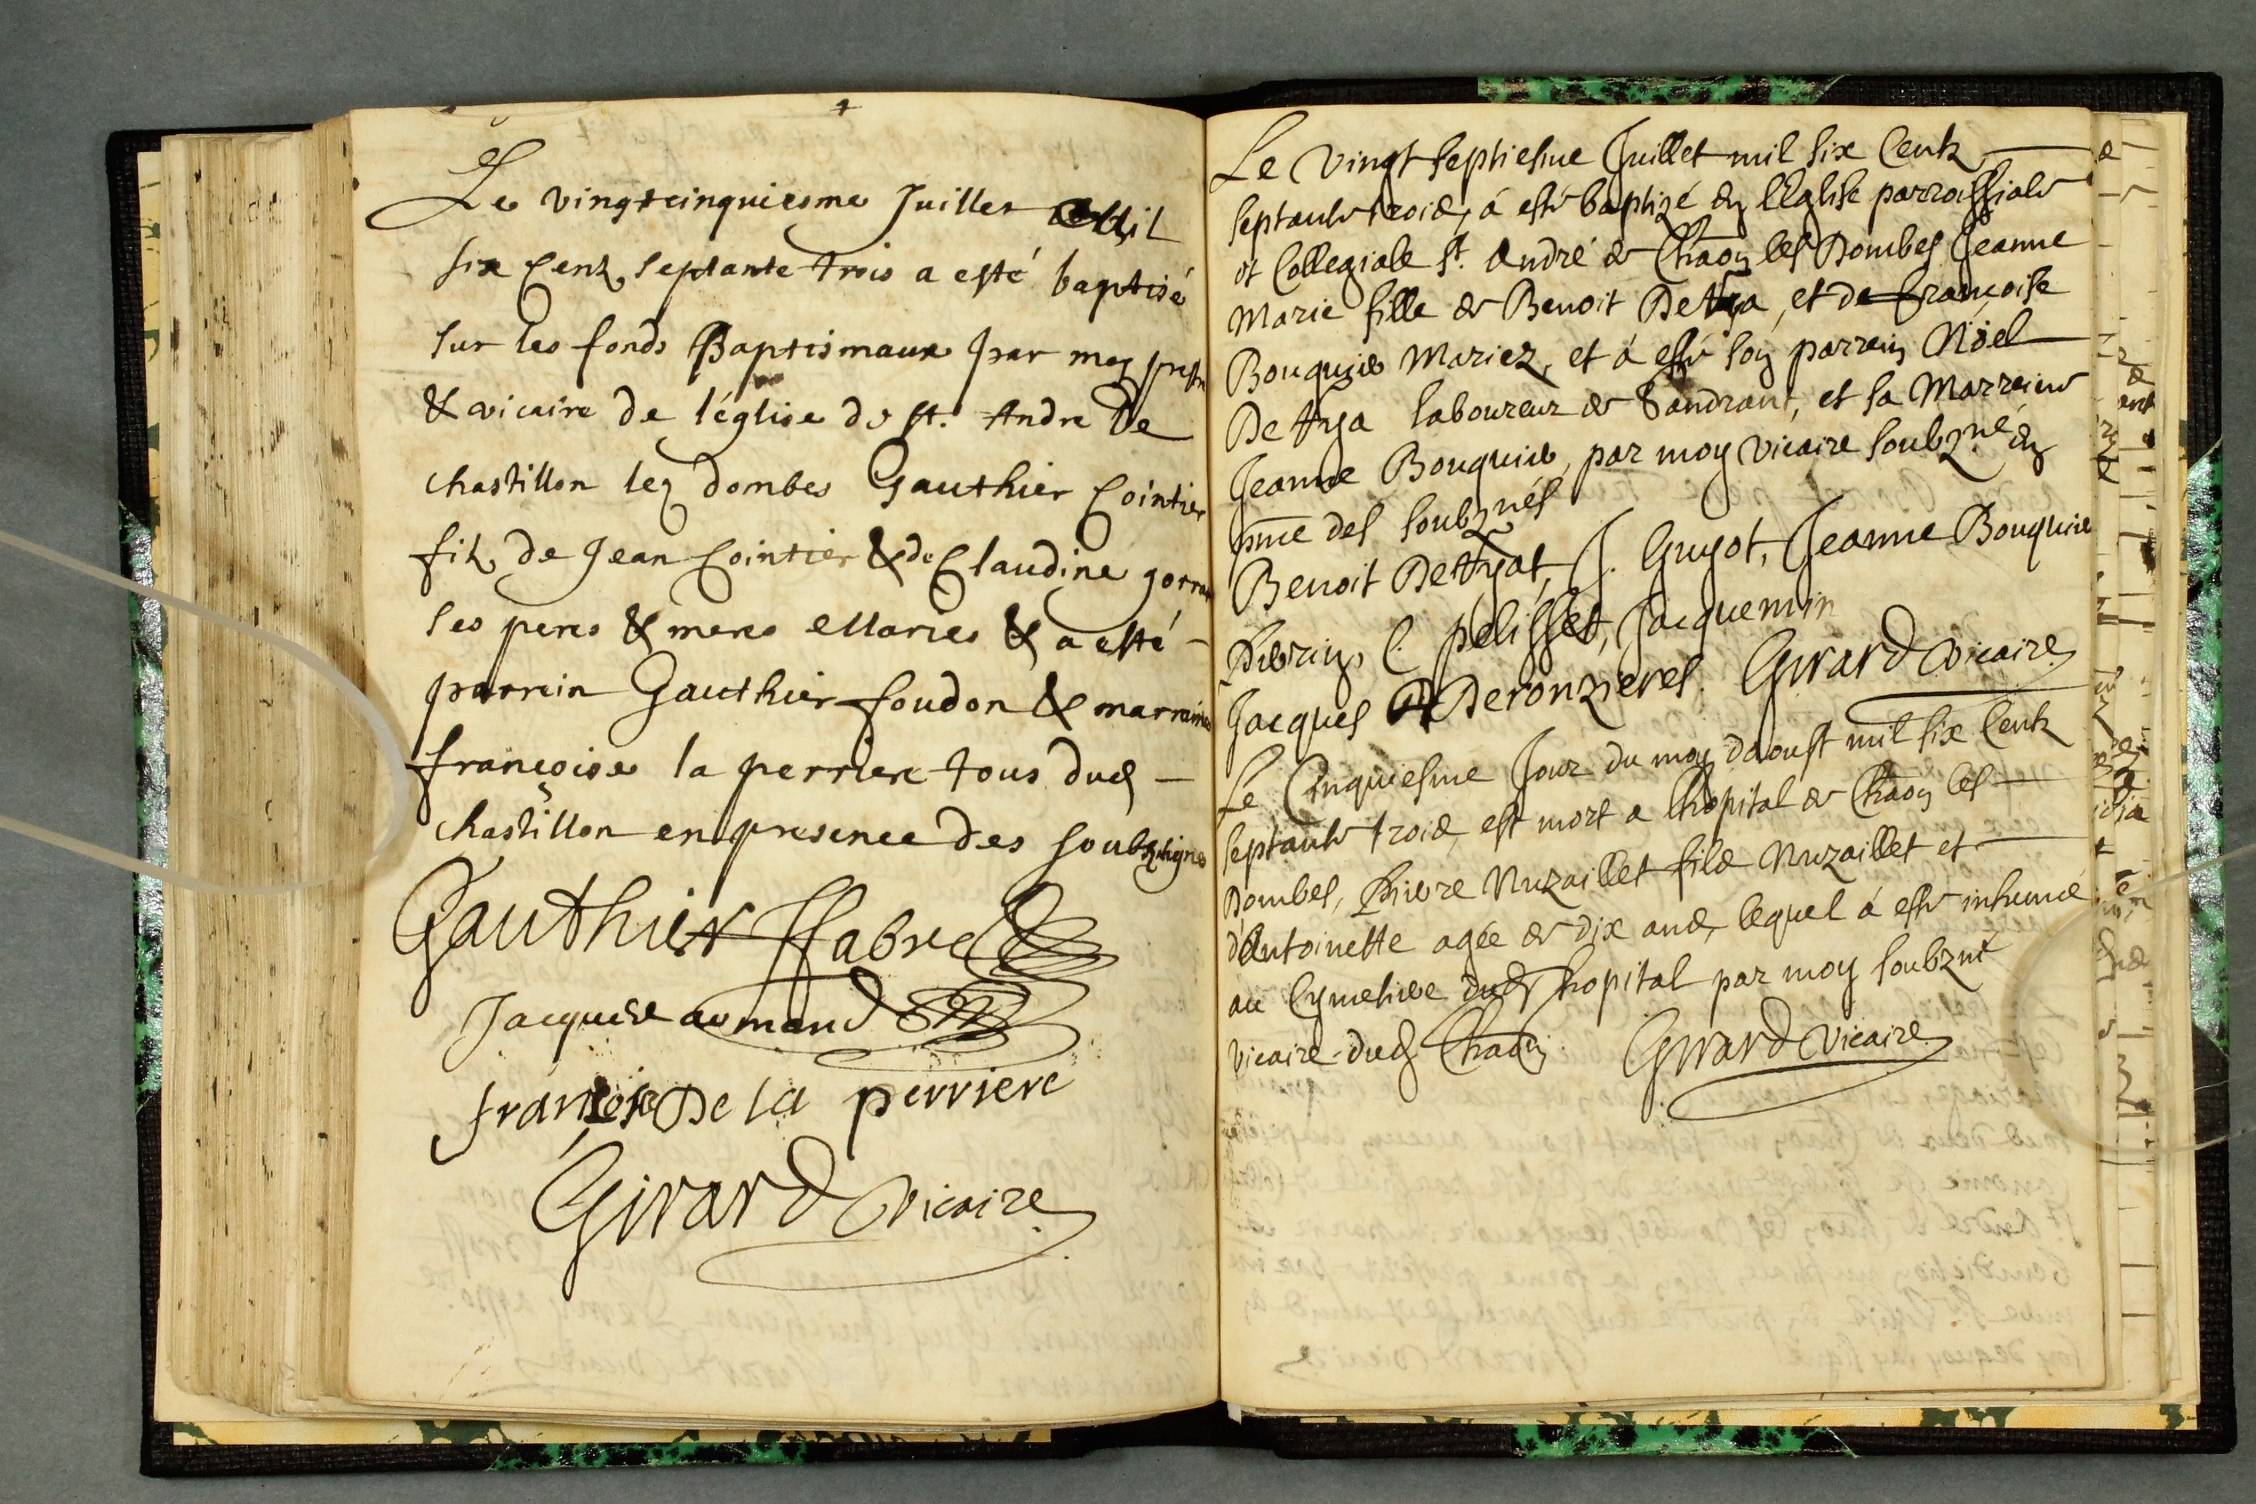 Le vingtcinquiesme Juillet Mil
six Cenz septante trois a esté baptisé
sur les fonds Baptismaux par moy prestre
& vicaire de l'église de st. Andre de
chastillon lez dombes Gauthier Cointier
filz de Jean Cointier & de Claudine
ses peres & meres Maries & a esté
parrein Gauthier foudon & marraine
françoise la perriere tous dud
chastillon en presence des soubzsignes
Gauthier Fabre
Jacques armand
françoise De la perriere
Girard vicaire
Le vingt septiesme Juillet mil six Centz
septante trois, à esté baptizé en l'Eglise parrossiale
et Collegiale st. André de Chãon les Dombes Jeanne
Marie fille de Benoit Dethya, et de Françoise
Bouquie Mariez, et à esté son parrein Nöel
Dethya laboureur de Sandrans, et sa Marreine
Jeanne Bouquie, par moy vicaire soubzné en
pnce des soubznés
Benoit Dethyat, J. Guyot, Jeanne Bouquie
C. pelisset, Jacquemin
Jacques Deronzieres. Girard vicaire
Le Cinquiesme Jour du moy daoust mil six Centz
septante trois, est mort a lhopital de Chãon les
Dombes, Pierre Nuzaillet fils Nuzaillet et
d'Antoinette agée de dix ans, lequel à esté inhumé
au Cymetiere dud hopital par moy soubzné
vicaire dud Chãon Girard vicaire